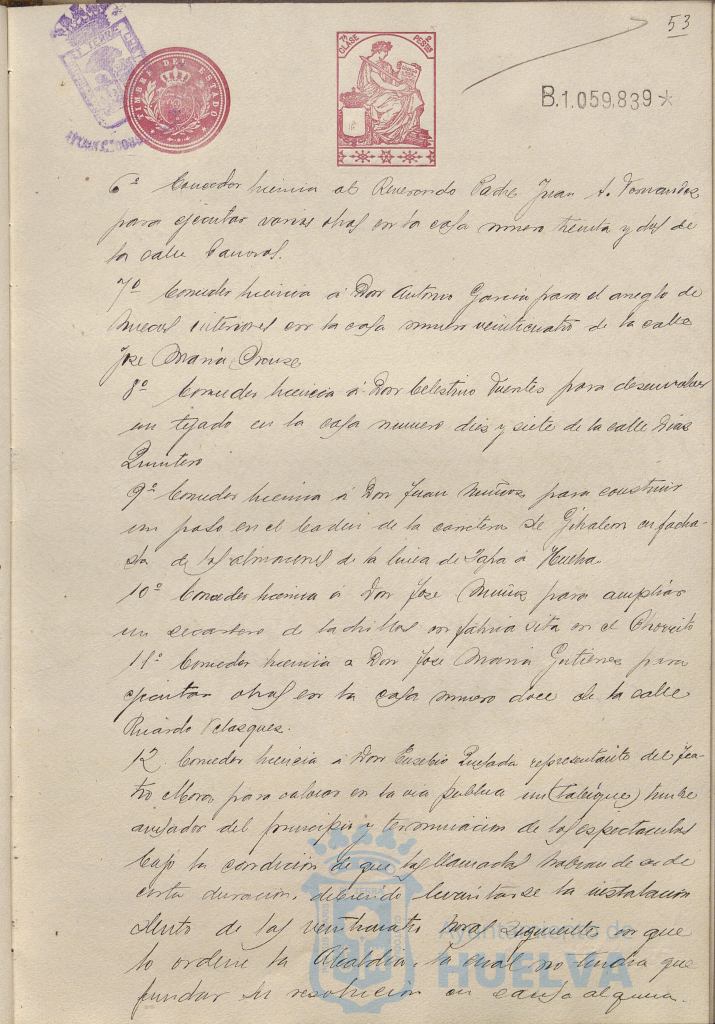 53
TIMBRE DEL ESTADO
7ª CLASE 2 PESETAS
B.1.059.839*
6º Conceder licencia al Reverendo Padre Juan A. Fernandez
para ejecutar varias obras en la casa numero treinta y dos de
la calle
7º Conceder licencia á Don Antonio Garcia para el arreglo de
interiores en la casa numero veinticuatro de la calle
Jose Maria
8º Conceder licencia á Don Celestino Fuentes para
un tejado en la casa numero diez y siete de la calle Dias
Quintero
9º Conceder licencia á Don Juan Muñoz para construir
un paso en el de la carretera de Gibraleon en facha-
da de los almacenes de la linea de Zafra á Huelva.
10º Conceder licencia á Don Jose Muñoz para ampliar
un secadero de ladrillos en fabrica sita en el
11º Conceder licencia a Don Jose Maria Gutierrez para
ejecutar obras en la casa numero doce de la calle
Ricardo Velasquez.
12. Conceder licencia á Don Eusebio Quesada representante del Tea-
tro Mora, para colocar en la via publica un timbre
avisador del principio y terminacion de los espectaculos
bajo la condicion de que las llamadas habran de ser de
corta duracion, debiendo levantarse la instalacion
dentro de las veinticuatro horas siguientes en que
lo ordene la Alcaldia, la cual no tendra que
fundar su resolucion en causa alguna.
Ayuntamiento de
HUELVA